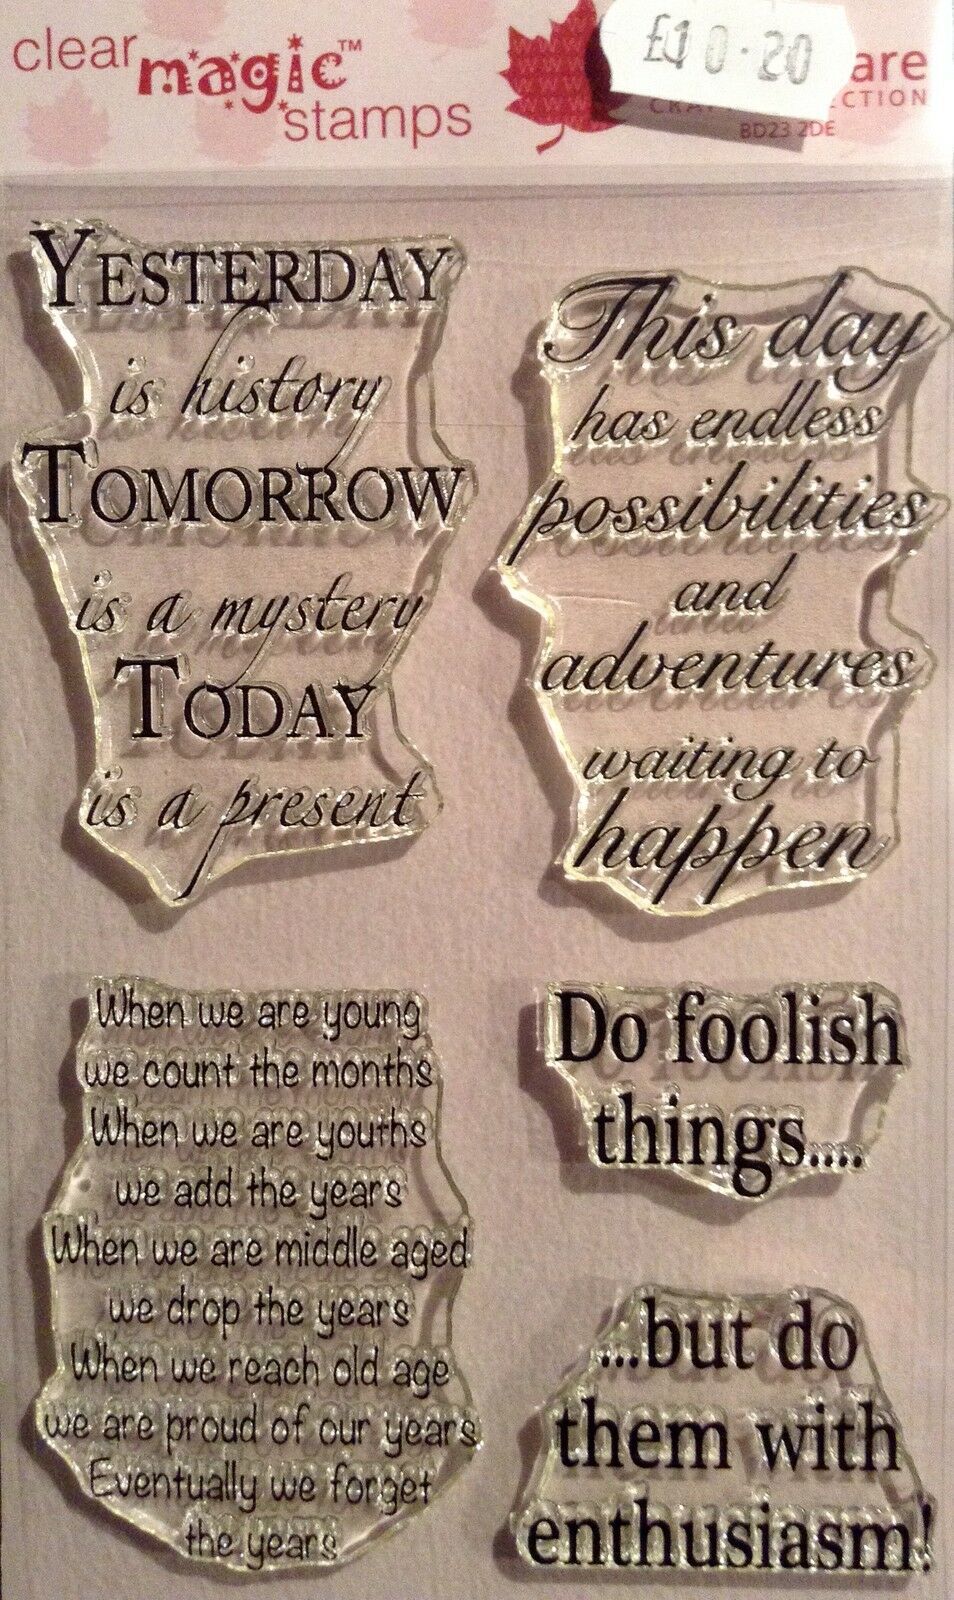 clear
magic™
stamps
£10.20
are
BD23 2DE
YESTERDAY
is history
TOMORROW
is a mystery
TODAY
is a present
This day
has endless
possibilities
and
adventures
waiting to
happen
When we are young
we count the months
When we are youths
we add the years
When we are middle aged
we drop the years
When we reach old age
we are proud of our years
Eventually we forget
the years
Do foolish
things....
...but do
them with
enthusiasm!